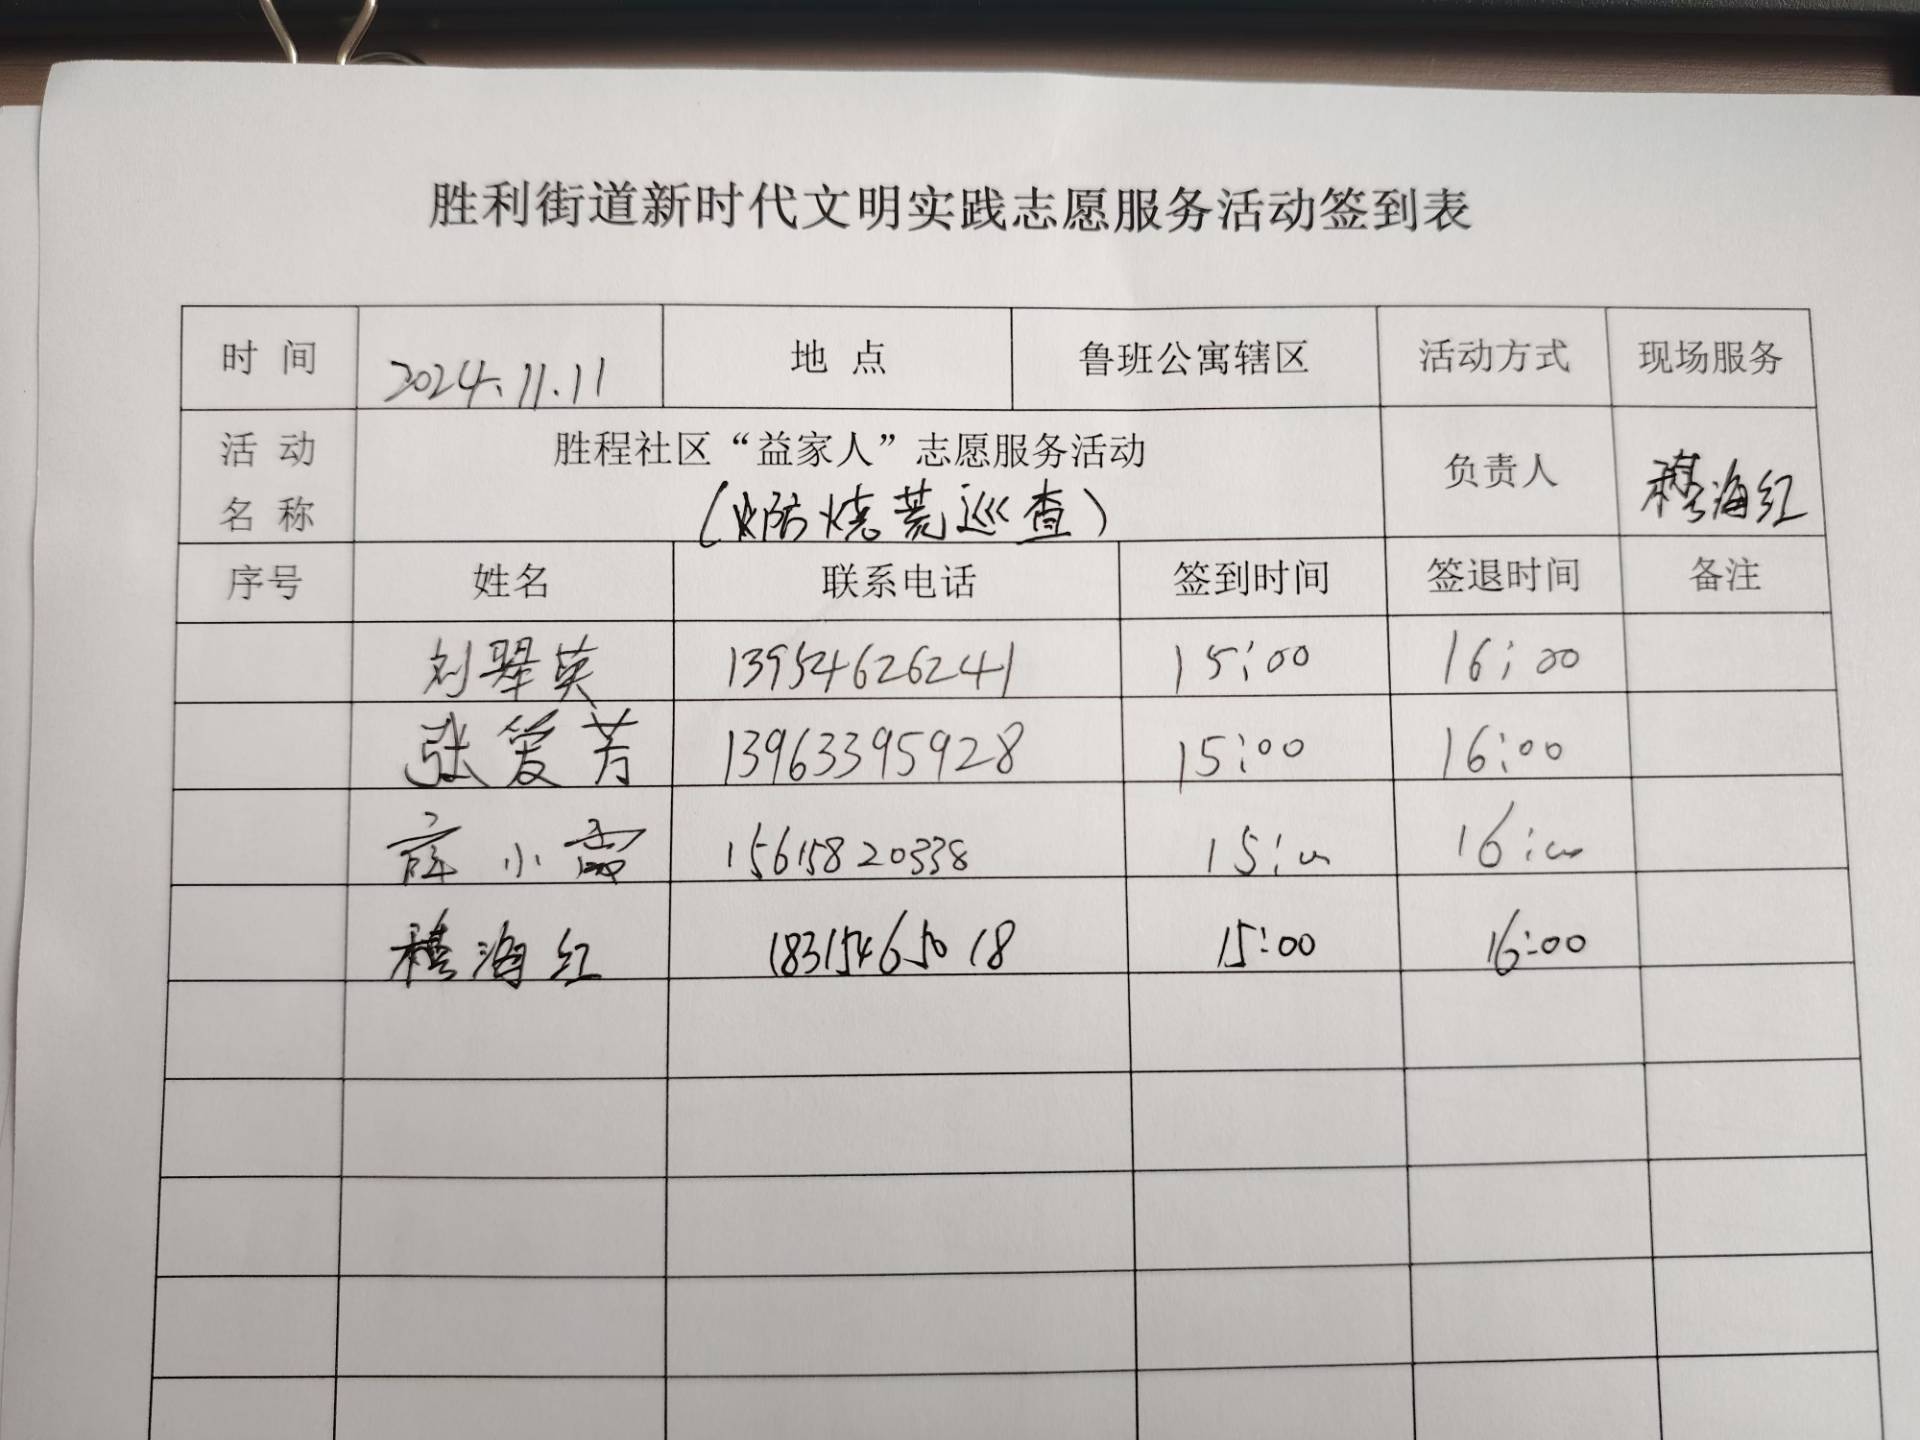 胜利街道新时代文明实践志愿服务活动签到表
时 间 2024.11.11 地 点 鲁班公寓辖区 活动方式 现场服务
活 动 名 称 胜程社区“益家人”志愿服务活动 负责人 穆海红
防烧荒巡查)
序号 姓名 联系电话 签到时间 签退时间 备注
刘翠英 13954626241 15:00 16:00
张爱芳 13963395928 15:00 16:00
薛小霞 15615820338 15:00 16:00
穆海红 18315465018 15:00 16:00